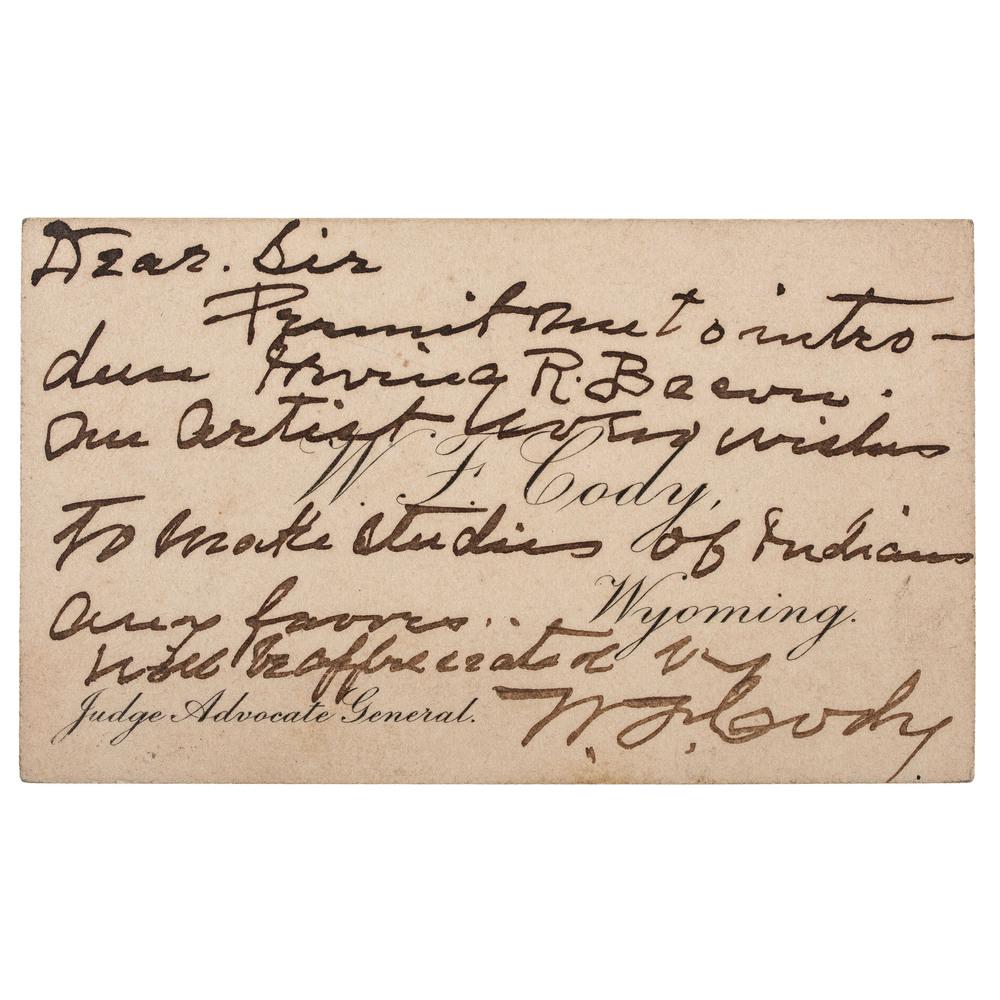 Dear. Sir
Permit me to intro-
duce Irving R. Bacon.
An artist who wishes
W. F. Cody,
To make studies of Indians
Wyoming.
any favors..
will be appreciated by
Judge Advocate General.
W. F. Cody